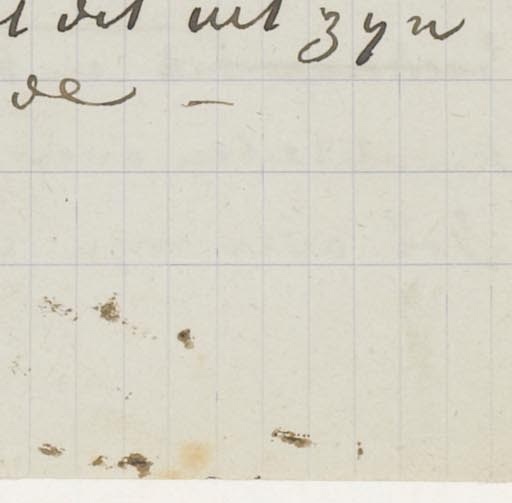 dit uit zyn
de —